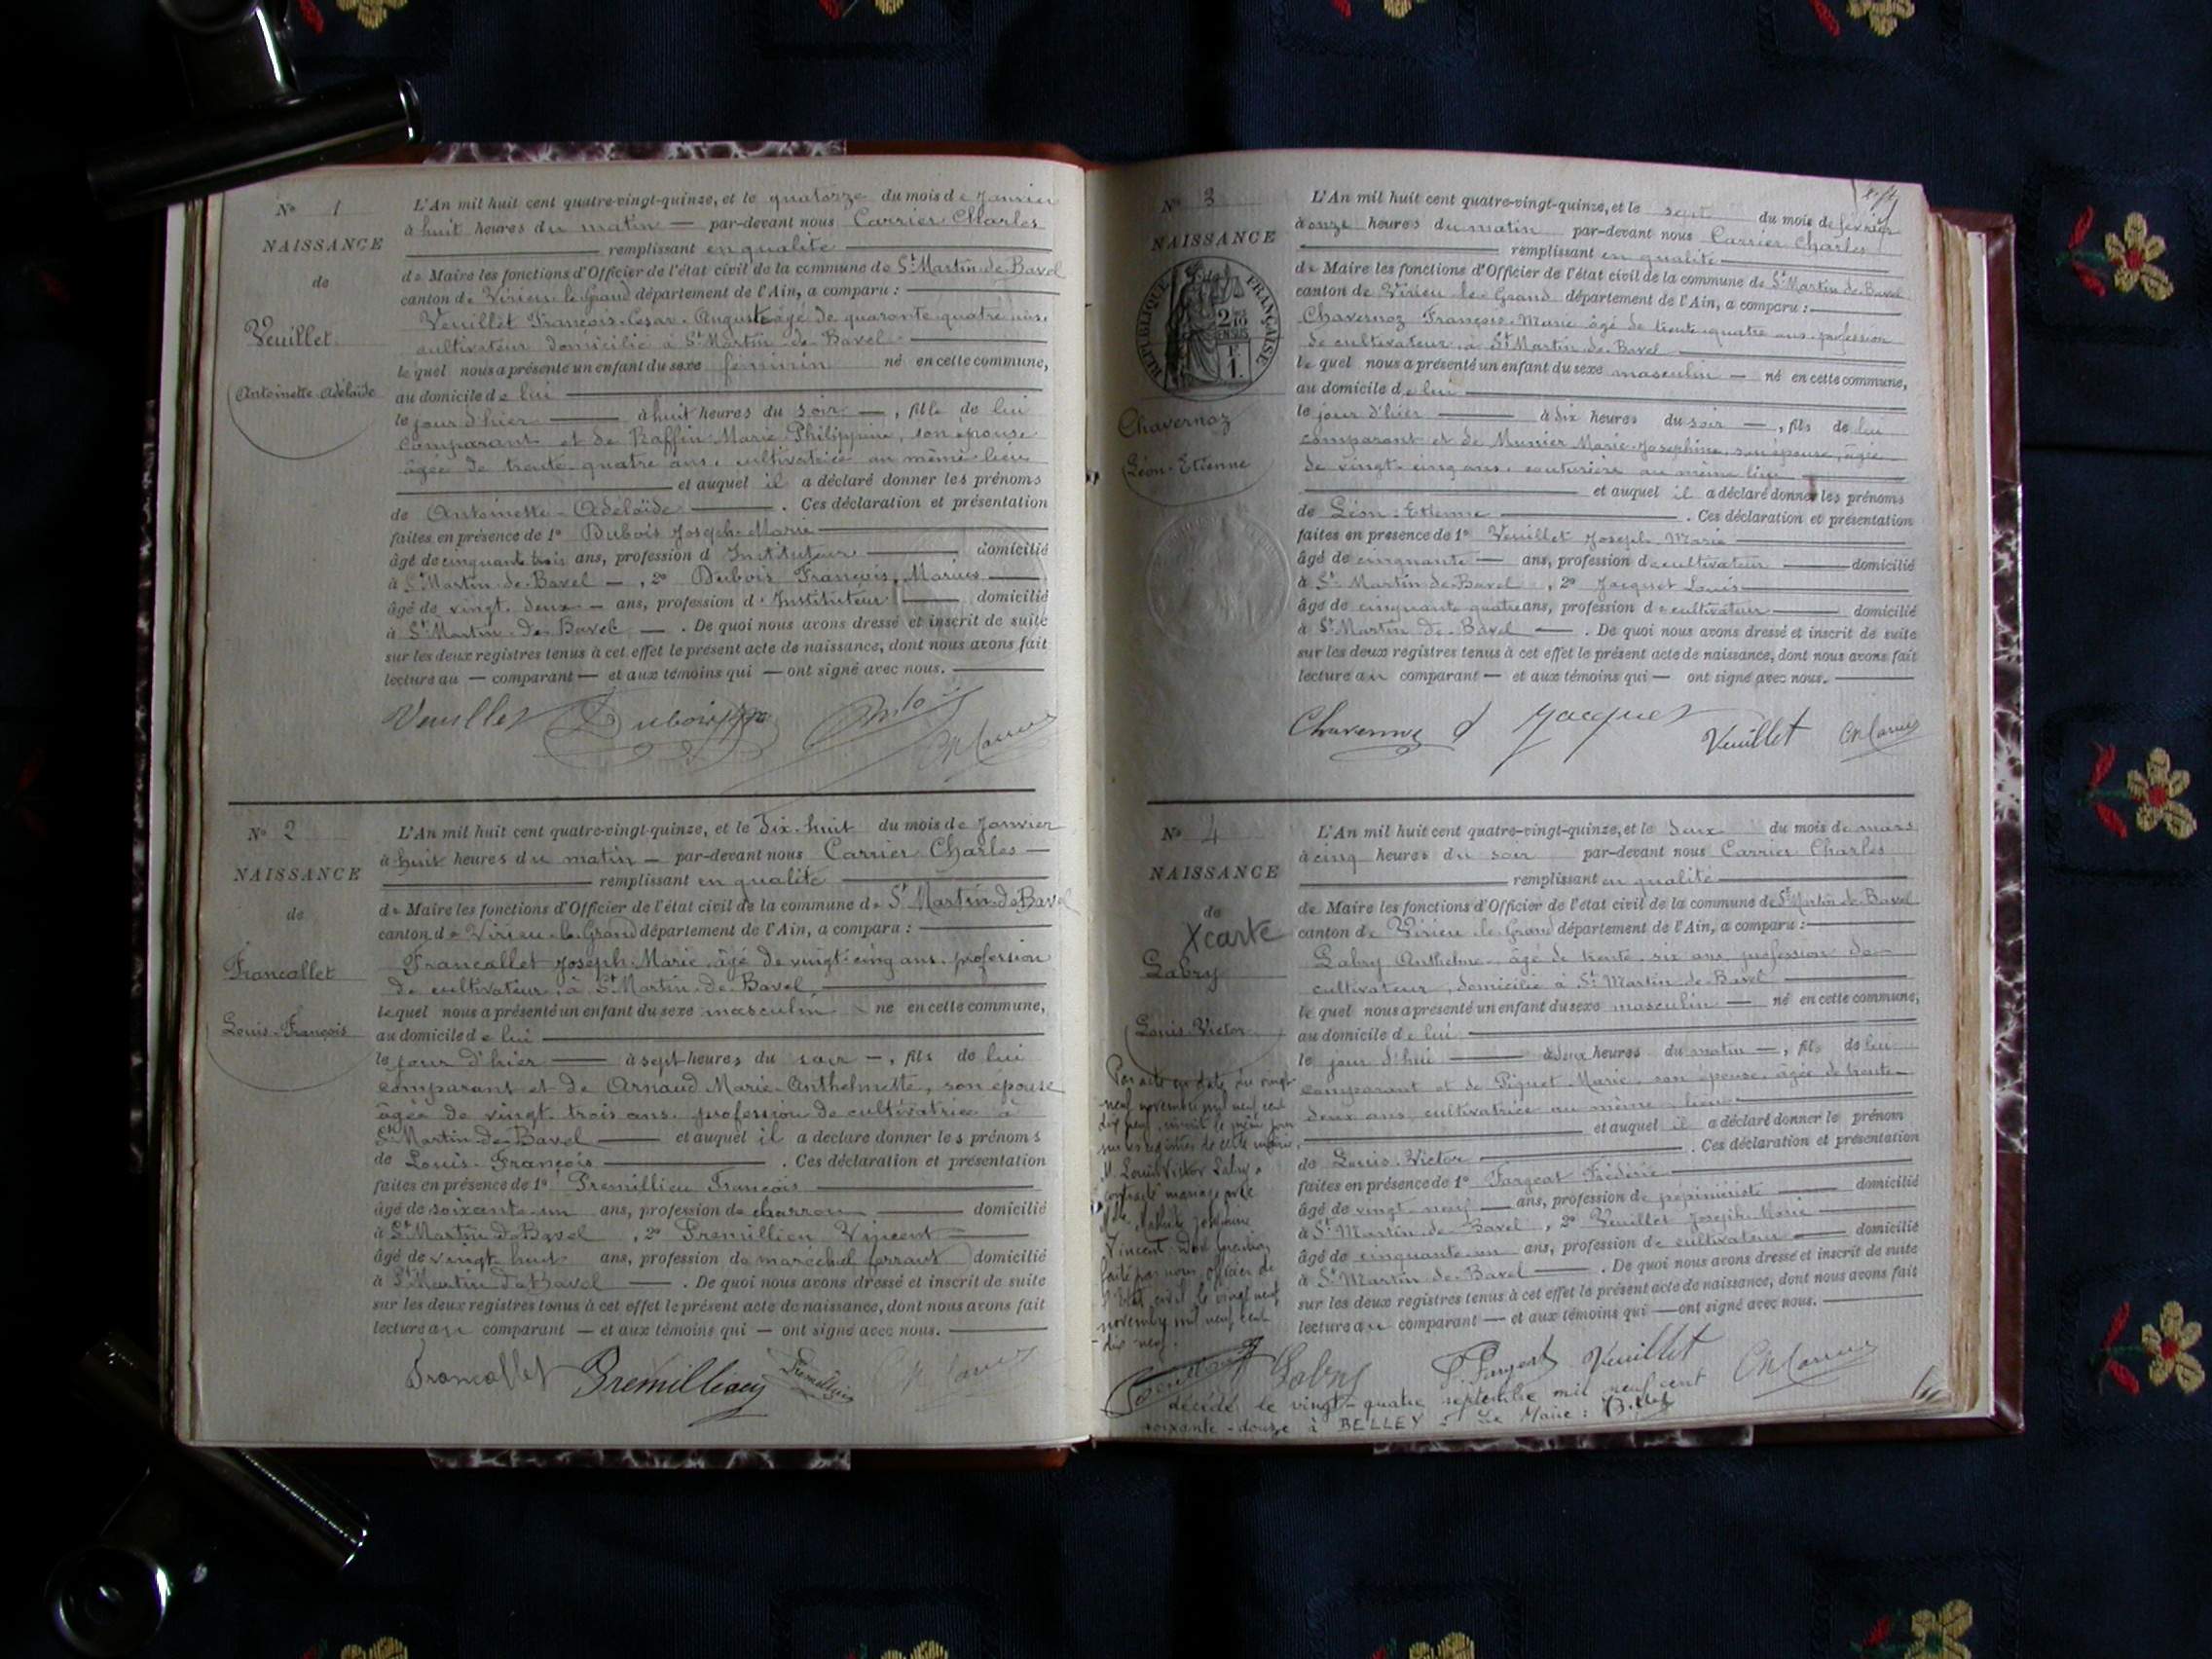 N° 1
NAISSANCE
de
Veuillet
Antoinette Adélaïde
L'An mil huit cent quatre-vingt-quinze, et le quatorze du mois de Janvier
à huit heures du matin — par-devant nous Carrier Charles
remplissant en qualité
de Maire les fonctions d'Officier de l'état civil de la commune de St Martin de Bavel
canton de Virieu le Grand département de l'Ain, a comparu :
Veuillet François César Auguste âgé de quarante quatre ans
cultivateur domicilié à St Martin de Bavel
lequel nous a présenté un enfant du sexe féminin né en cette commune,
au domicile de lui
le jour d'hier à huit heures du soir —, fille de lui
comparant et de Baffin Marie Philippine, son épouse
âgée de trente-quatre ans, cultivatrice au même lieu
et auquel il a déclaré donner les prénoms
de Antoinette-Adélaïde . Ces déclaration et présentation
faites en présence de 1° Dubois Joseph-Marie
âgé de cinquante trois ans, profession d'Instituteur domicilié
à St Martin de Bavel —, 2° Dubois François, Marius
âgé de vingt-deux — ans, profession d'Instituteur domicilié
à St Martin de Bavel — . De quoi nous avons dressé et inscrit de suite
sur les deux registres tenus à cet effet le présent acte de naissance, dont nous avons fait
lecture au — comparant — et aux témoins qui — ont signé avec nous.
Veuillet Dubois
N° 2
NAISSANCE
de
Francallet
Louis-François
L'An mil huit cent quatre-vingt-quinze, et le dix-huit du mois de Janvier
à huit heures du matin — par-devant nous Carrier Charles —
remplissant en qualité
de Maire les fonctions d'Officier de l'état civil de la commune de St Martin de Bavel
canton de Virieu-le-Grand département de l'Ain, a comparu :
Francallet Joseph Marie âgé de vingt-cinq ans, profession
de cultivateur, à St Martin-de-Bavel
lequel nous a présenté un enfant du sexe masculin né en cette commune,
au domicile de lui
le jour d'hier — à sept heures du soir —, fils de lui
comparant et de Arnaud Marie-Anthelmette, son épouse
âgée de vingt-trois ans, profession de cultivatrice à
St Martin de Bavel — et auquel il a déclaré donner les prénoms
de Louis-François . Ces déclaration et présentation
faites en présence de 1° Premillieu François
âgé de soixante-un ans, profession de charron domicilié
à St Martin de Bavel , 2° Premillieu Vincent
âgé de vingt-huit ans, profession de maréchal ferrant domicilié
à St Martin de Bavel — . De quoi nous avons dressé et inscrit de suite
sur les deux registres tenus à cet effet le présent acte de naissance, dont nous avons fait
lecture au comparant — et aux témoins qui — ont signé avec nous.
Francallet Premillieu Premillieu
N° 3
NAISSANCE
de
RÉPUBLIQUE FRANÇAISE
Chavernoz
Léon-Etienne
L'An mil huit cent quatre-vingt-quinze, et le sept du mois de février
à onze heures du matin par-devant nous Carrier Charles
remplissant en qualité
de Maire les fonctions d'Officier de l'état civil de la commune de St Martin de Bavel
canton de Virieu-le-Grand département de l'Ain, a comparu :
Chavernoz François-Marie âgé de trente-quatre ans, profession
de cultivateur, à St Martin de Bavel
lequel nous a présenté un enfant du sexe masculin — né en cette commune,
au domicile de lui
le jour d'hier à dix heures du soir —, fils de lui
comparant et de Munier Marie-Josephine, son épouse, âgée
de vingt-cinq ans, couturière au même lieu
et auquel il a déclaré donner les prénoms
de Léon-Etienne . Ces déclaration et présentation
faites en présence de 1° Veuillet Joseph Marie
âgé de cinquante — ans, profession de cultivateur domicilié
à St Martin de Bavel , 2° Jacquet Louis
âgé de cinquante quatre ans, profession de cultivateur domicilié
à St Martin de Bavel — . De quoi nous avons dressé et inscrit de suite
sur les deux registres tenus à cet effet le présent acte de naissance, dont nous avons fait
lecture au comparant — et aux témoins qui — ont signé avec nous.
Jacquet Veuillet
N° 4
NAISSANCE
de
X carte
Labry
Louis-Victor
L'An mil huit cent quatre-vingt-quinze, et le deux du mois de mars
à cinq heures du soir par-devant nous Carrier Charles
remplissant en qualité
de Maire les fonctions d'Officier de l'état civil de la commune de St Martin de Bavel
canton de Virieu-le-Grand département de l'Ain, a comparu :
Labry Anthelme âgé de trente-six ans, profession de
cultivateur, domicilié à St Martin de Bavel
lequel nous a présenté un enfant du sexe masculin — né en cette commune,
au domicile de lui
le jour d'hui à deux heures du matin —, fils de lui
comparant et de Piquet Marie, son épouse, âgée de trente-
deux ans, cultivatrice au même lieu
et auquel il a déclaré donner le prénom
de Louis-Victor . Ces déclaration et présentation
faites en présence de 1° Fargeat Frédéric
âgé de vingt-neuf ans, profession de pépiniériste domicilié
à St Martin de Bavel , 2° Veuillet Joseph-Marie
âgé de cinquante-un ans, profession de cultivateur domicilié
à St Martin de Bavel — . De quoi nous avons dressé et inscrit de suite
sur les deux registres tenus à cet effet le présent acte de naissance, dont nous avons fait
lecture au comparant — et aux témoins qui — ont signé avec nous.
Par acte en date du vingt-
neuf novembre mil neuf cent
dix neuf, inscrit le même jour
sur les registres de cette mairie,
M. Louis Victor Labry a
contracté mariage avec
Joséphine
Vincent. Dont mention
faite par nous, officier de
l'état civil le vingt neuf
novembre mil neuf cent
dix-neuf.
Labry F. Fargeat Veuillet
décédé le vingt-quatre septembre mil neuf cent
soixante-douze à BELLEY - Le Maire :